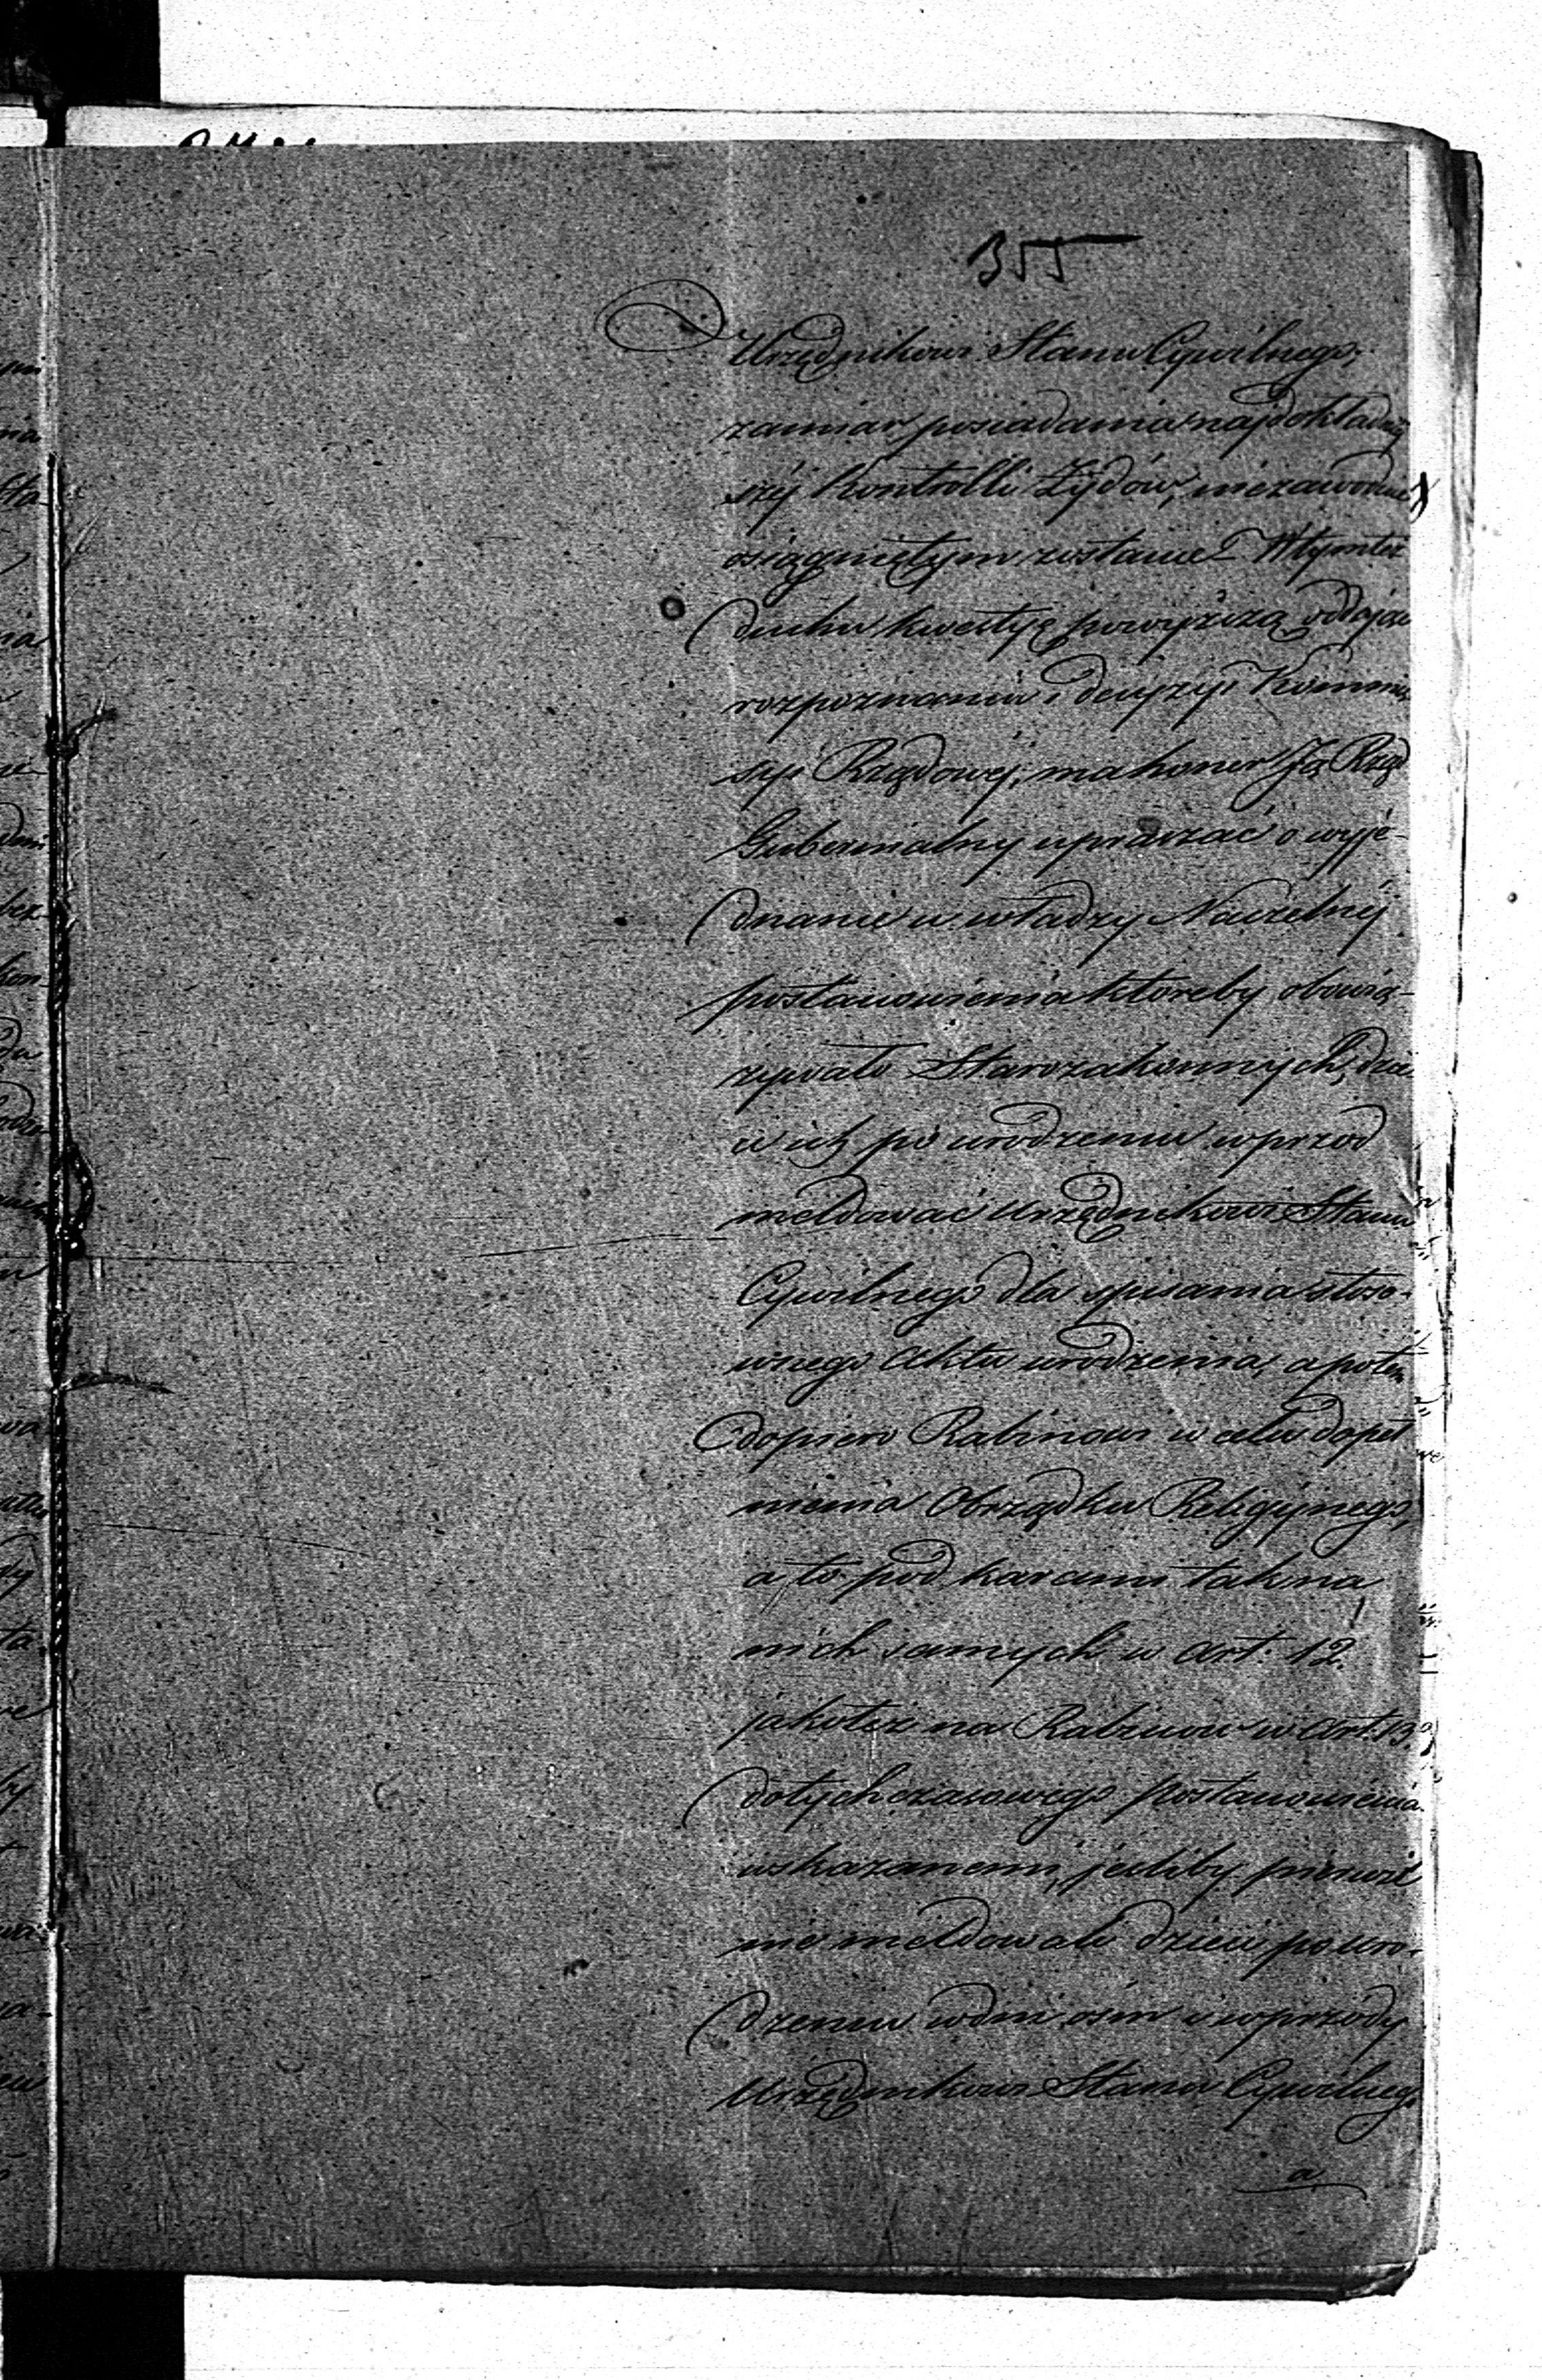 355
Urzędnikowi Stanu Cywilnego,
zamiar posiadania najdokładniej
széj kontrolli Żydów, niezawodnie
osiągniętym zostanie. W tym też
duchu kwestyę powyższą oddając
rozpoznaniu i decyzyi Kommis
syi Rządowéj, ma honor Ją Rząd
Gubernialny upraszać o wyje-
dnanie u władzy Naczelnéj
postanowienia któreby obowią-
zywało Starozakonnych, dzie
ci ich po urodzeniu wprzod
meldować Urzędnikowi Stanu
Cywilnego dla spisania stoso-
wnego Aktu urodzenia, a potem
dopiero Rabinowi w celu dopeł
nienia Obrządku Religijnego,
a to pod karami tak na
nich samych w art. 12.
jakoteż na Rabinow w art. 13.
dotychczasowego postanowienia
wskazanemi, jeśliby pierwsi
nie meldowali dzieci po uro-
dzeniu w dni ośm i wprzódy
Urzędnikowi Stanu Cywilnego
a